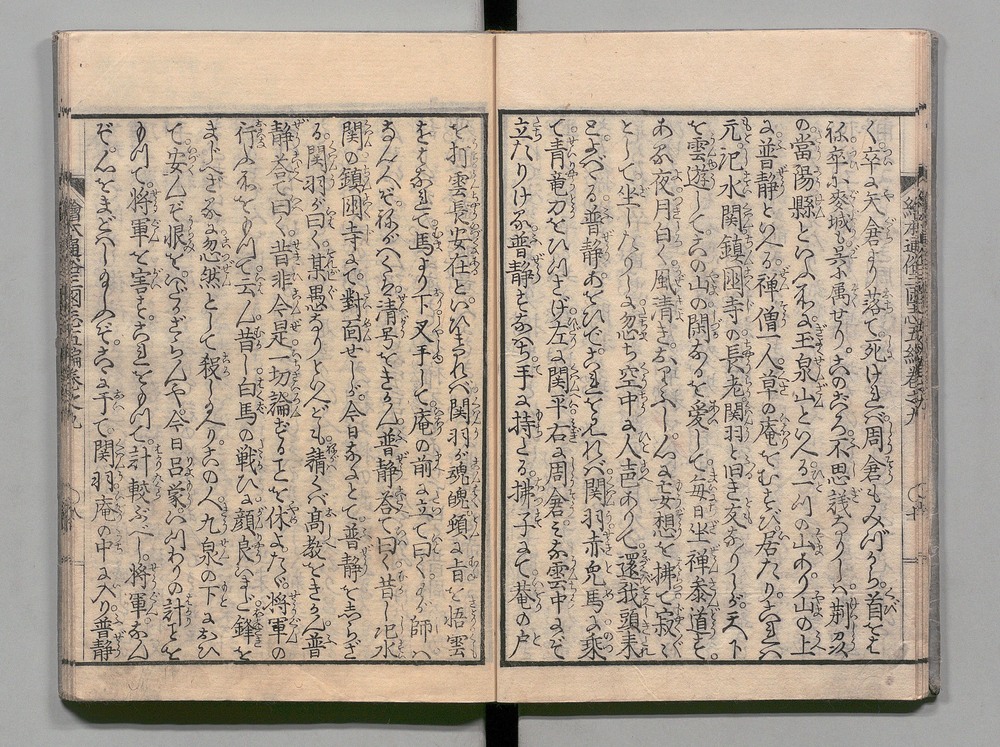 く。卒に矢倉より落て死けれバ。周倉もみづから首をは
ね。卒に麦城も呉に属せり。このおろ不思議なりしハ。荊州
の當陽縣といふ所に玉泉山といへる一ツの山あり。山の上
に普静といへる禅僧一人草の庵をむすび居たり。これハ
元汜水関鎮國寺の長老関羽と旧き友なりしが。天下
を雲遊してこの山の閑なるを愛して毎日坐禅参道を。
ある夜月白く風清きおりふし。人に妄想を拂て寂々
として坐したりしに。忽ち空中に人音ありて還我頭来
とよべる。普静あをひでこれをミれバ。関羽赤兎馬に乗
て青竜刀をひつさげ。左に関平右に周倉ミな雲中にぞ
立たりける。普静すなハち手に持たる拂子にて菴の戸
を打雲長安在といひければ。関羽が魂魄頓に旨を悟雲
をはなれて馬より下。叉手して庵の前に立て曰く。わが師ハ
なん人ぞねがハくハ清号をきかん。普静答て曰く。昔し汜水
関の鎮國寺にて對面せしが。今日なにとて普静をしらざ
る。関羽が曰く。某愚なりといへども請くバ高教をきかん。普
静答て曰く。昔非今是一切論ずることを休よ。たゞ将軍の
行ふ所をもつて云ん。昔し白馬の戦ひに顔良いまだ鋒を
まじへざるに忽然として殺したまへり。この人九泉の下におひ
て。安んぞ恨をいだかざらんや。今日呂蒙いつわりの計を
もつて将軍を害す。これをもつて計較ぶべし。将軍なん
ぞ心をまどハしたまハんや。こゝに于て関羽庵の中に入り普静